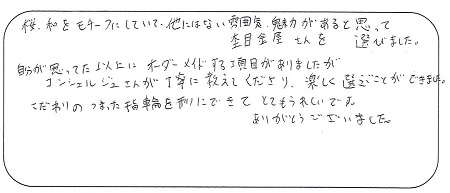 桜、和をモチーフにしていて、他にはない雰囲気、魅力があると思って
杢目金屋さんを 選びました。
自分が思ってた以上に オーダーメイドする項目がありましたが
コンシェルジュさんが丁寧に教えてくださり、楽しく選ぶことができました。
こだわりのつまった指輪を形にできて とてもうれしいです
ありがとうございました。